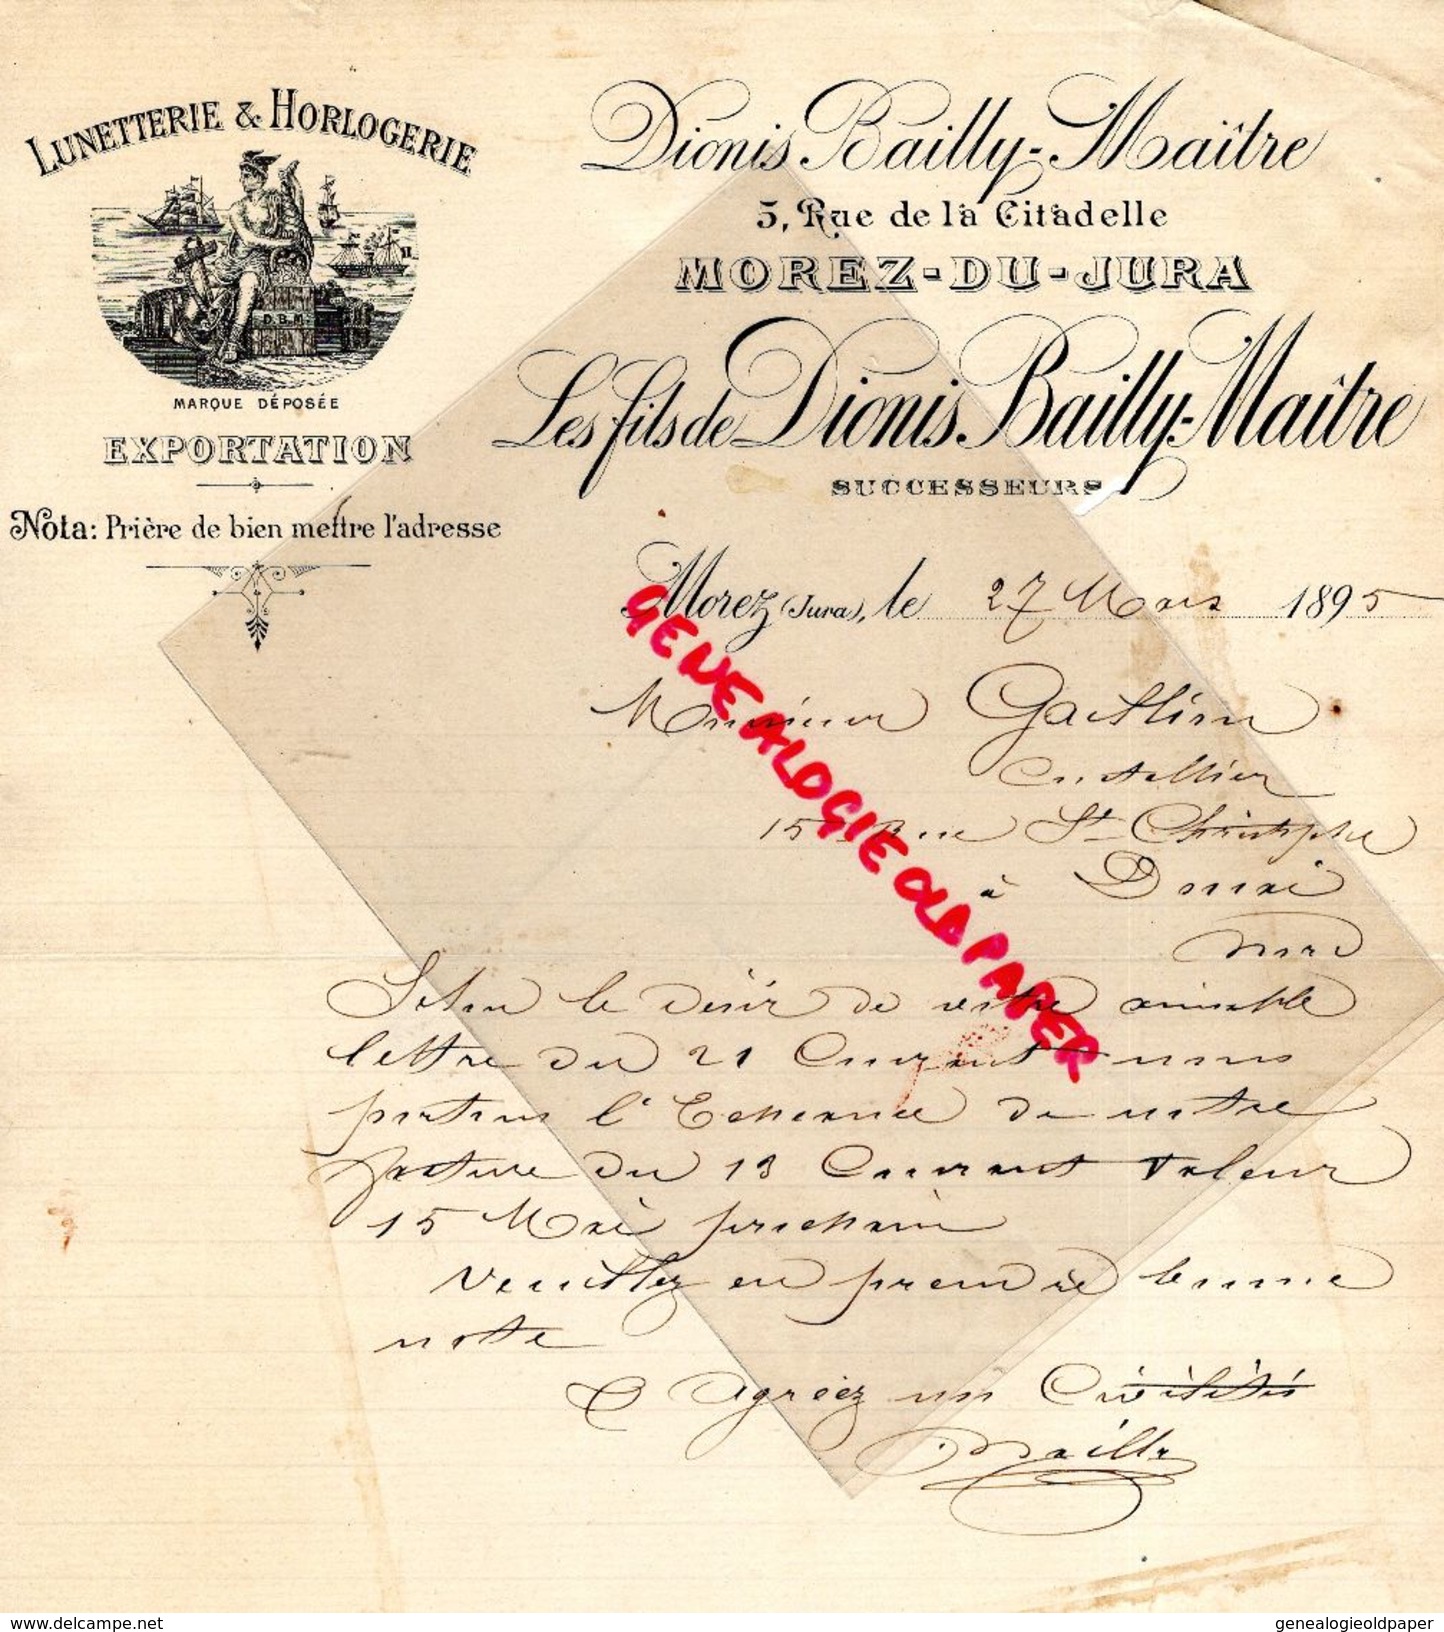 LUNETTERIE & HORLOGERIE
D.B.M.
MARQUE DÉPOSÉE
EXPORTATION
Nota: Prière de bien mettre l'adresse
Dionis Bailly-Maître
5, Rue de la Citadelle
MOREZ-DU-JURA
Les fils de Dionis Bailly-Maître
SUCCESSEURS
Morez (Jura), le 27 Mars 1895
Monsieur
15 Rue St Christophe
à Douai
Nord
Selon le désir de votre aimable
lettre du 21 Courant nous
portons l'Echeance de notre
facture du 13 Courant valeur
15 Mai prochain
Veuillez en prendre bonne
note
& Agréez nos Civilités
Bailly
GENEALOGIE OLD PAPER
www.delcampe.net
genealogieoldpaper